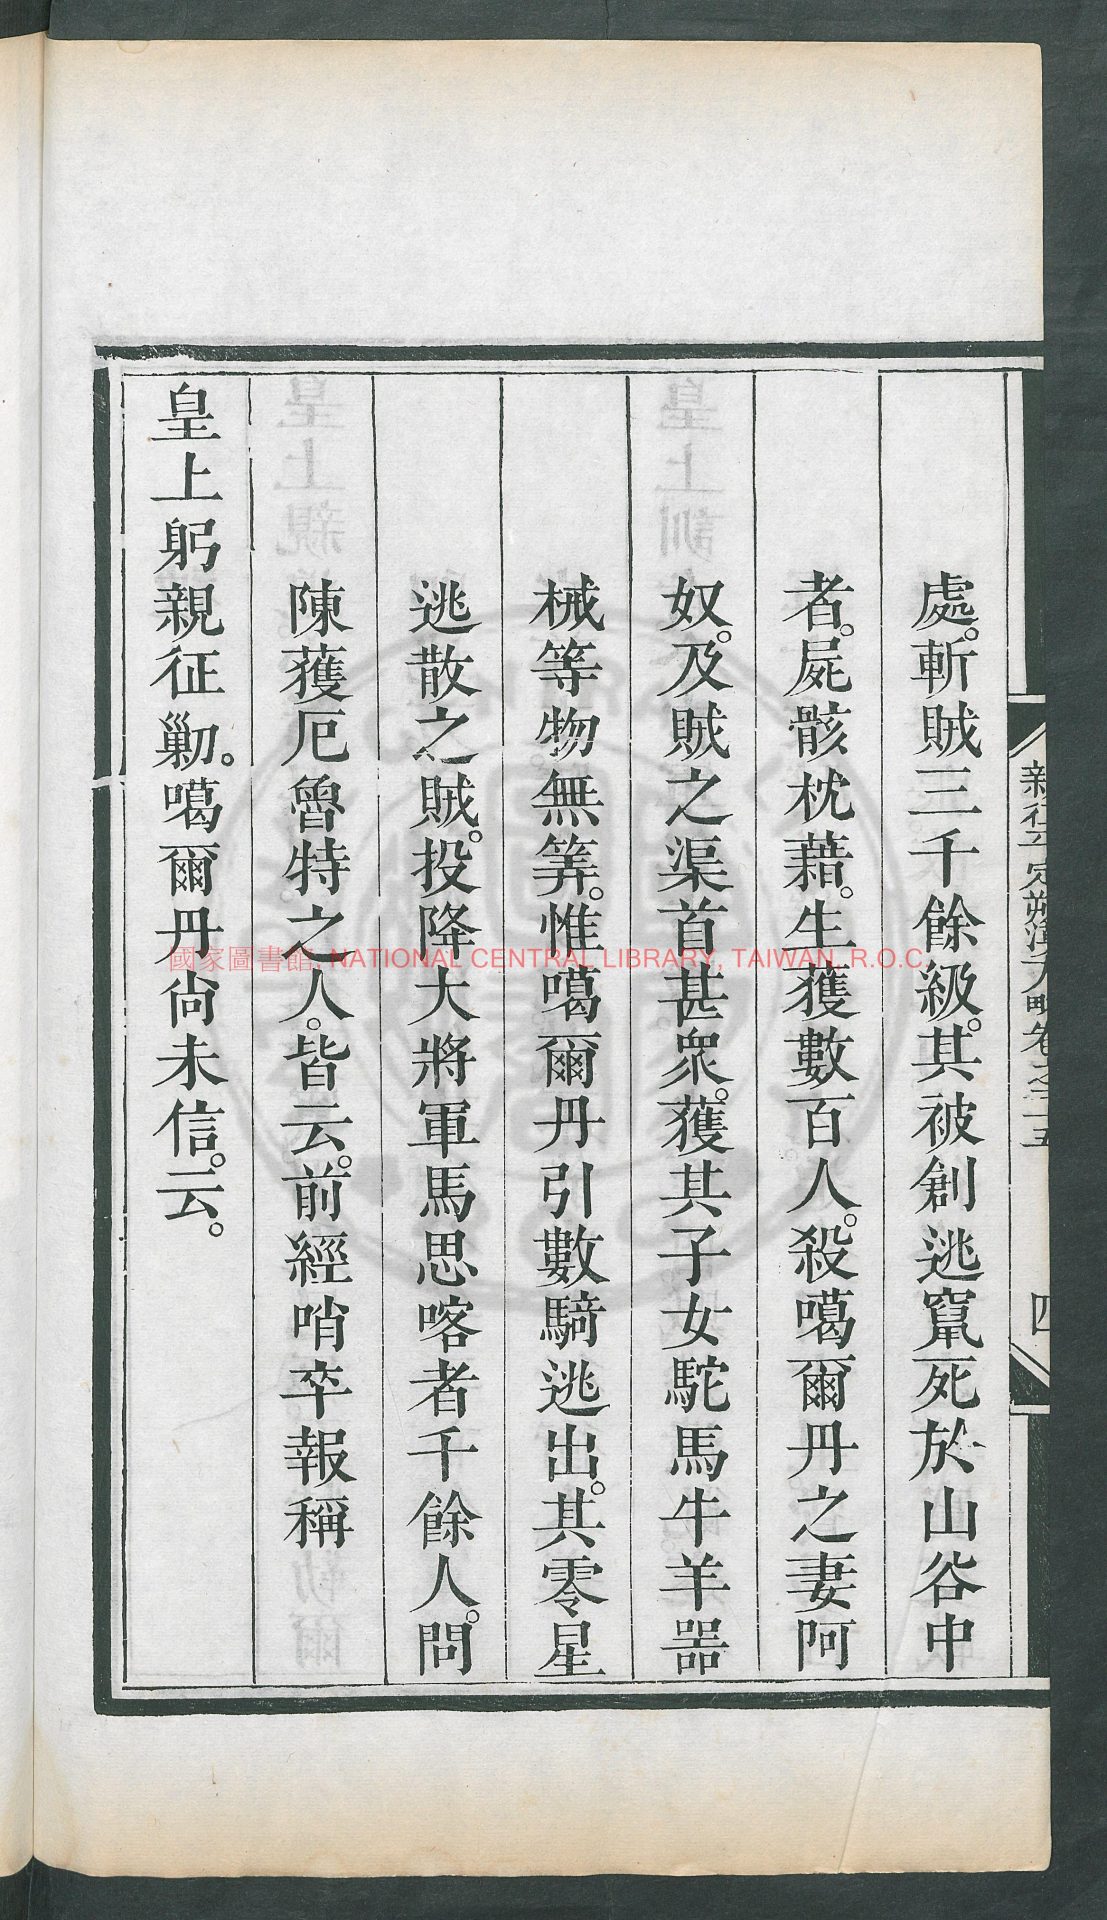 處。斬賊三千餘級。其被創逃竄死於山谷中
者。屍骸枕藉。生獲數百人。殺噶爾丹之妻阿
奴。及賊之渠首甚衆。獲其子女駝馬牛羊器
械等物無筭。惟噶爾丹引數騎逃出。其零星
逃散之賊。投降大將軍馬思喀者千餘人。問
陳獲厄魯特之人。皆云。前經哨卒報稱
皇上躬親征勦。噶爾丹尚未信。云。
四
國家圖書館, NATIONAL CENTRAL LIBRARY, TAIWAN, R.O.C.